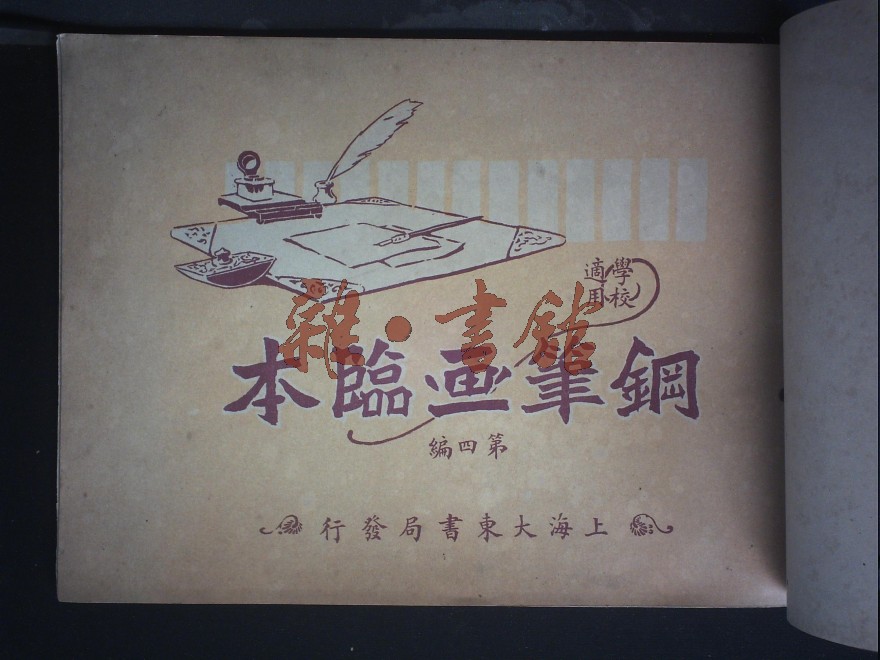 學校
適用
雜·書館
鋼筆画臨本
第四編
上海大東書局發行